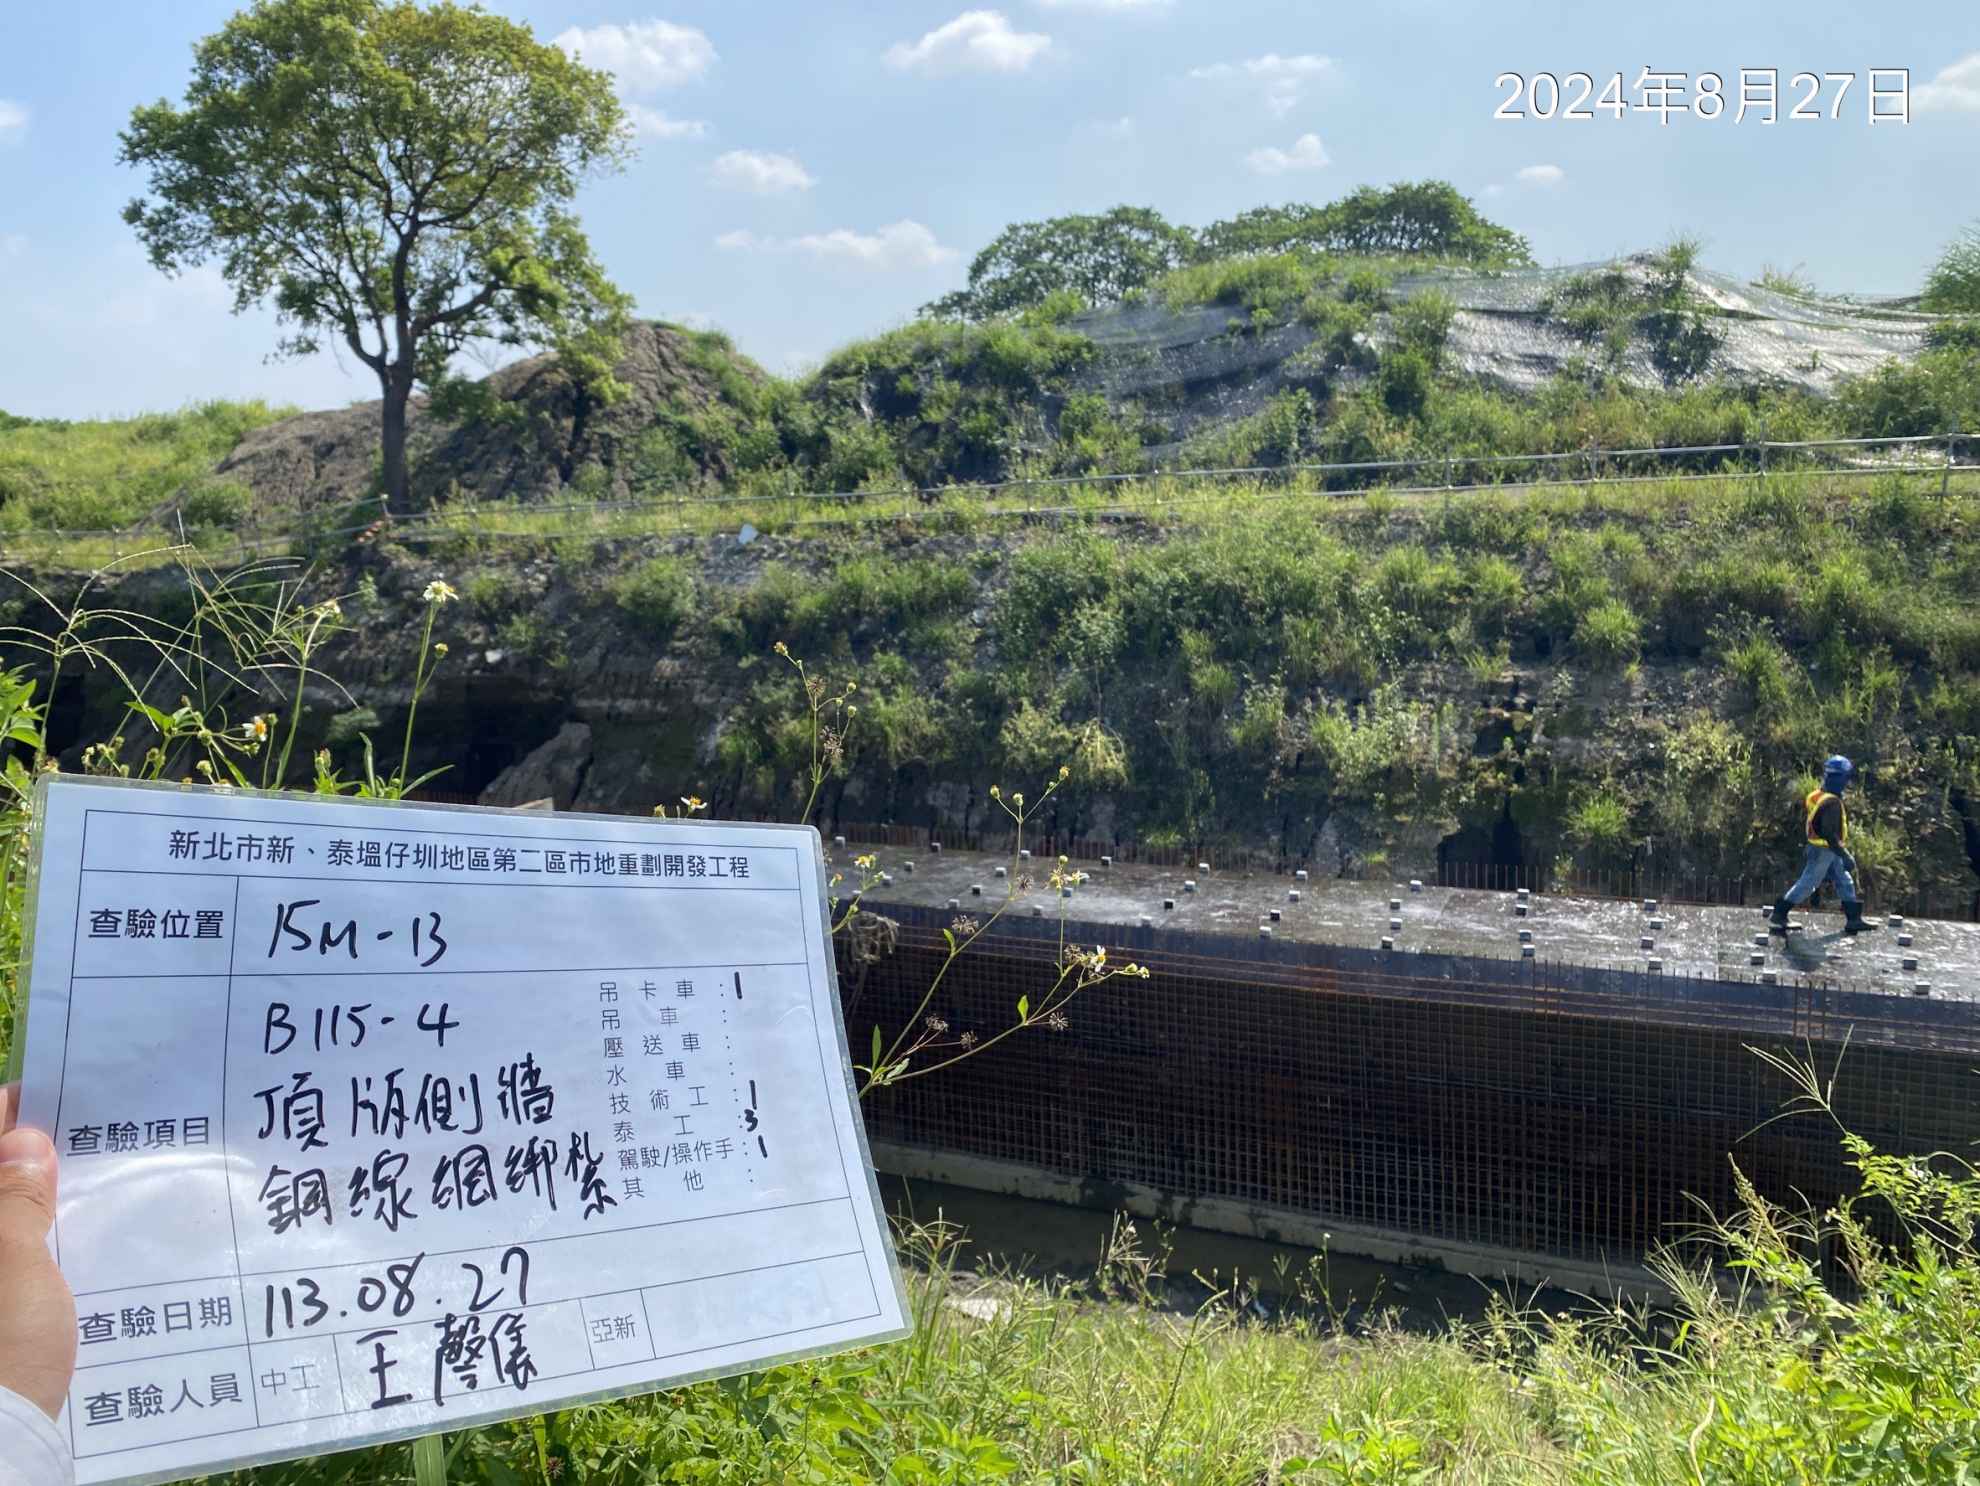 2024年8月27日
新北市新、泰塭仔圳地區第二區市地重劃開發工程
查驗位置 15M-13
查驗項目
B115-4
頂版側牆
鋼線網綁紮
吊卡車：1
吊車：
壓送車：
水車：
技術工：1
泰工：3
駕駛/操作手：1
其他：
查驗日期 113.08.27
查驗人員 中工 王馨儀 亞新